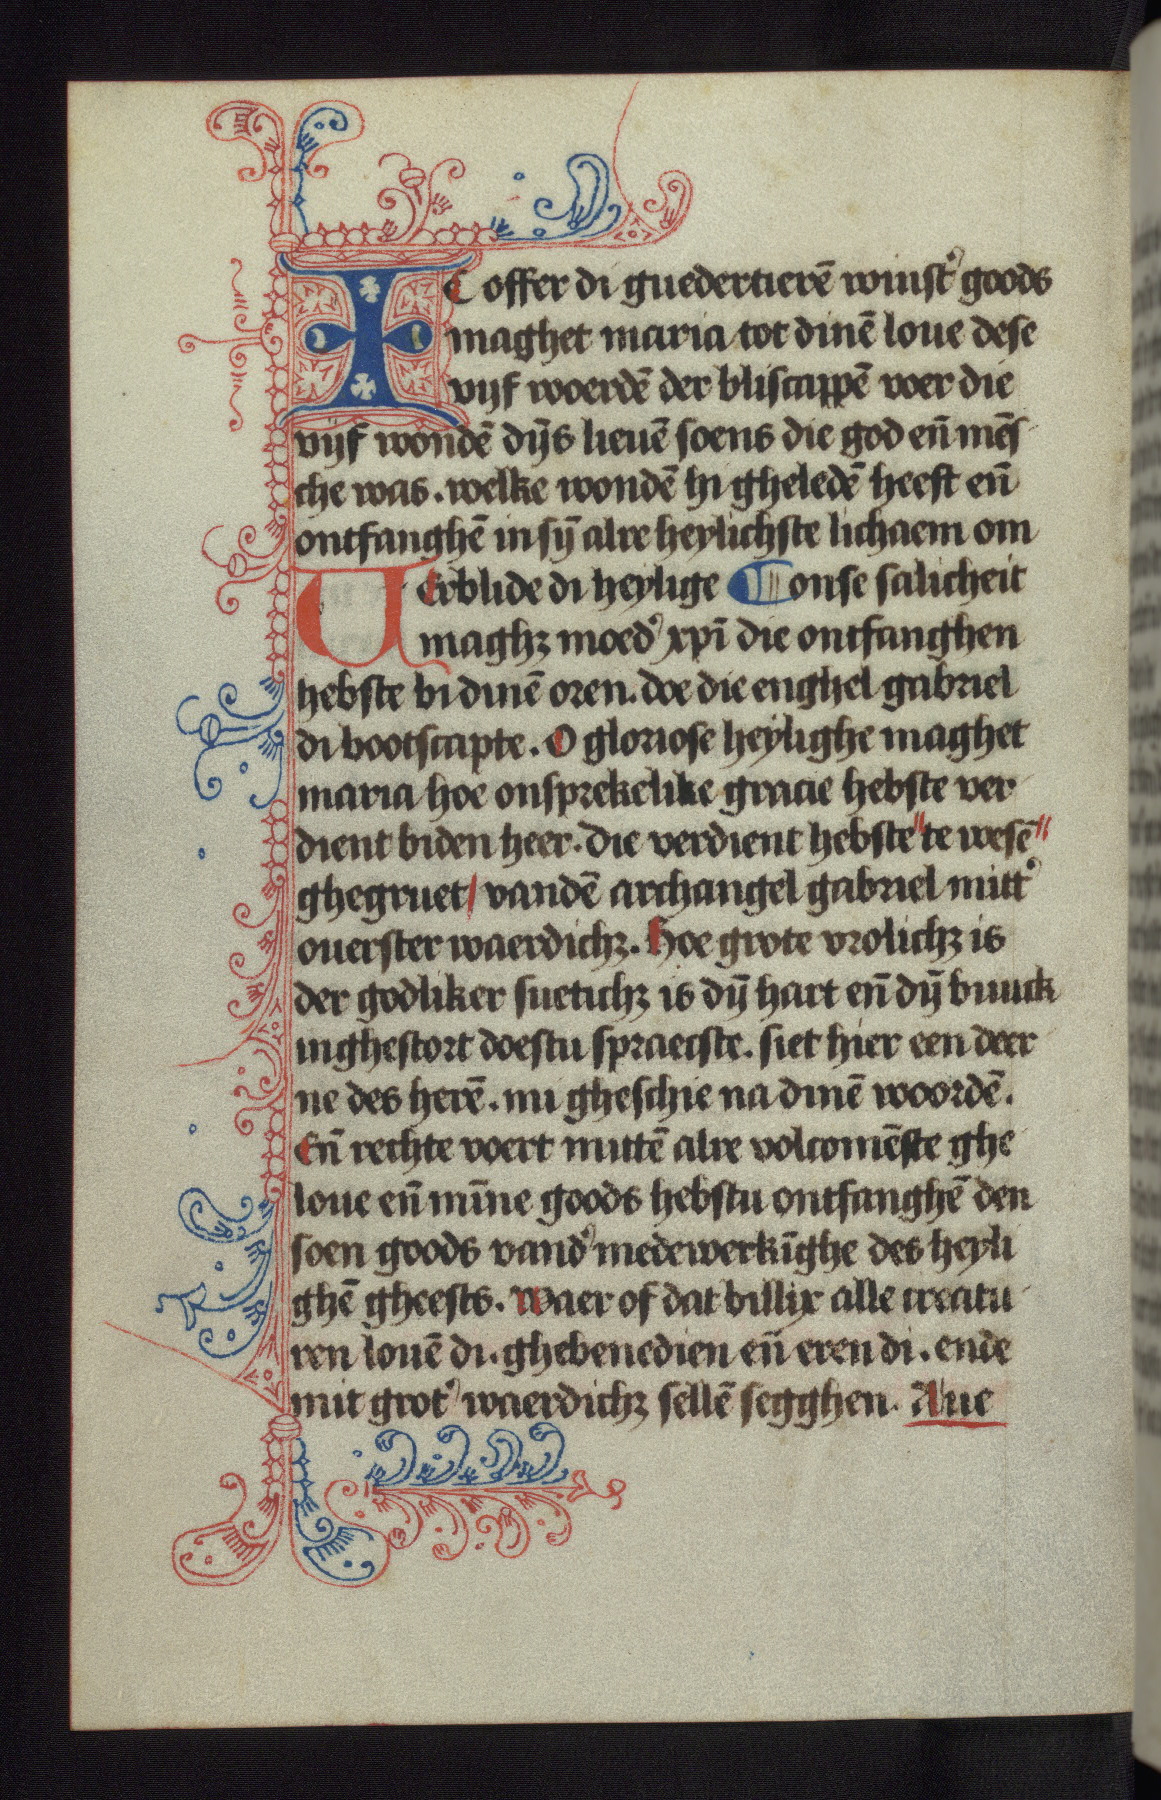 IC offer di guedertierē winst᷑ goods
maghet maria tot dinē loue dese
vijf woerdē der bliscappē voer die
vijf wondē dijs lieuē soens die god eñ mēs
che was. welke wondē hi gheledē heeft eñ
ontfanghē in sȳ alre heylichste lichaem om
VErblide di heylige ¶ onse salicheit
maghꝫ moed᷑ xp̄i die ontfanghen
hebste bi dinē oren. doe die enghel gabriel
di bootscapte. O gloriose heylighe maghet
maria hoe onsprekelike gracie hebste ver
dient biden heer. die verdient hebste" te wesē"
ghegruet/ vandē archangel gabriel mitt᷑
ouerster waerdichꝫ. Hoe grote vrolichꝫ is
der godliker suetichꝫ is dȳ hart eñ dȳ buuck
inghestort doestu spraecste. siet hier een deer
ne des herē. mi gheschie na dinē woordē.
Eñ rechte voert mittē alre volcomēste ghe
loue eñ mīne goods hebstu ontfanghē den
soen goods vand᷑ medewerkīghe des heyli
ghē gheests. Waer of dat billix alle creatu
ren louē di. ghebenedien eñ eren di. ende
mit grot᷑ waerdichꝫ sellē segghen. Aue